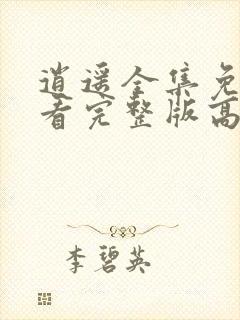 逍遥全集免
看完整版高
李碧英